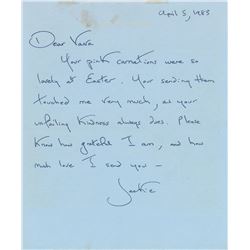 April 5, 1983
Dear Vava
Your pink carnations were so
lovely at Easter. Your sending them
touched me very much, as your
unfailing kindness always does. Please
know how grateful I am, and how
much love I send you —
Jackie